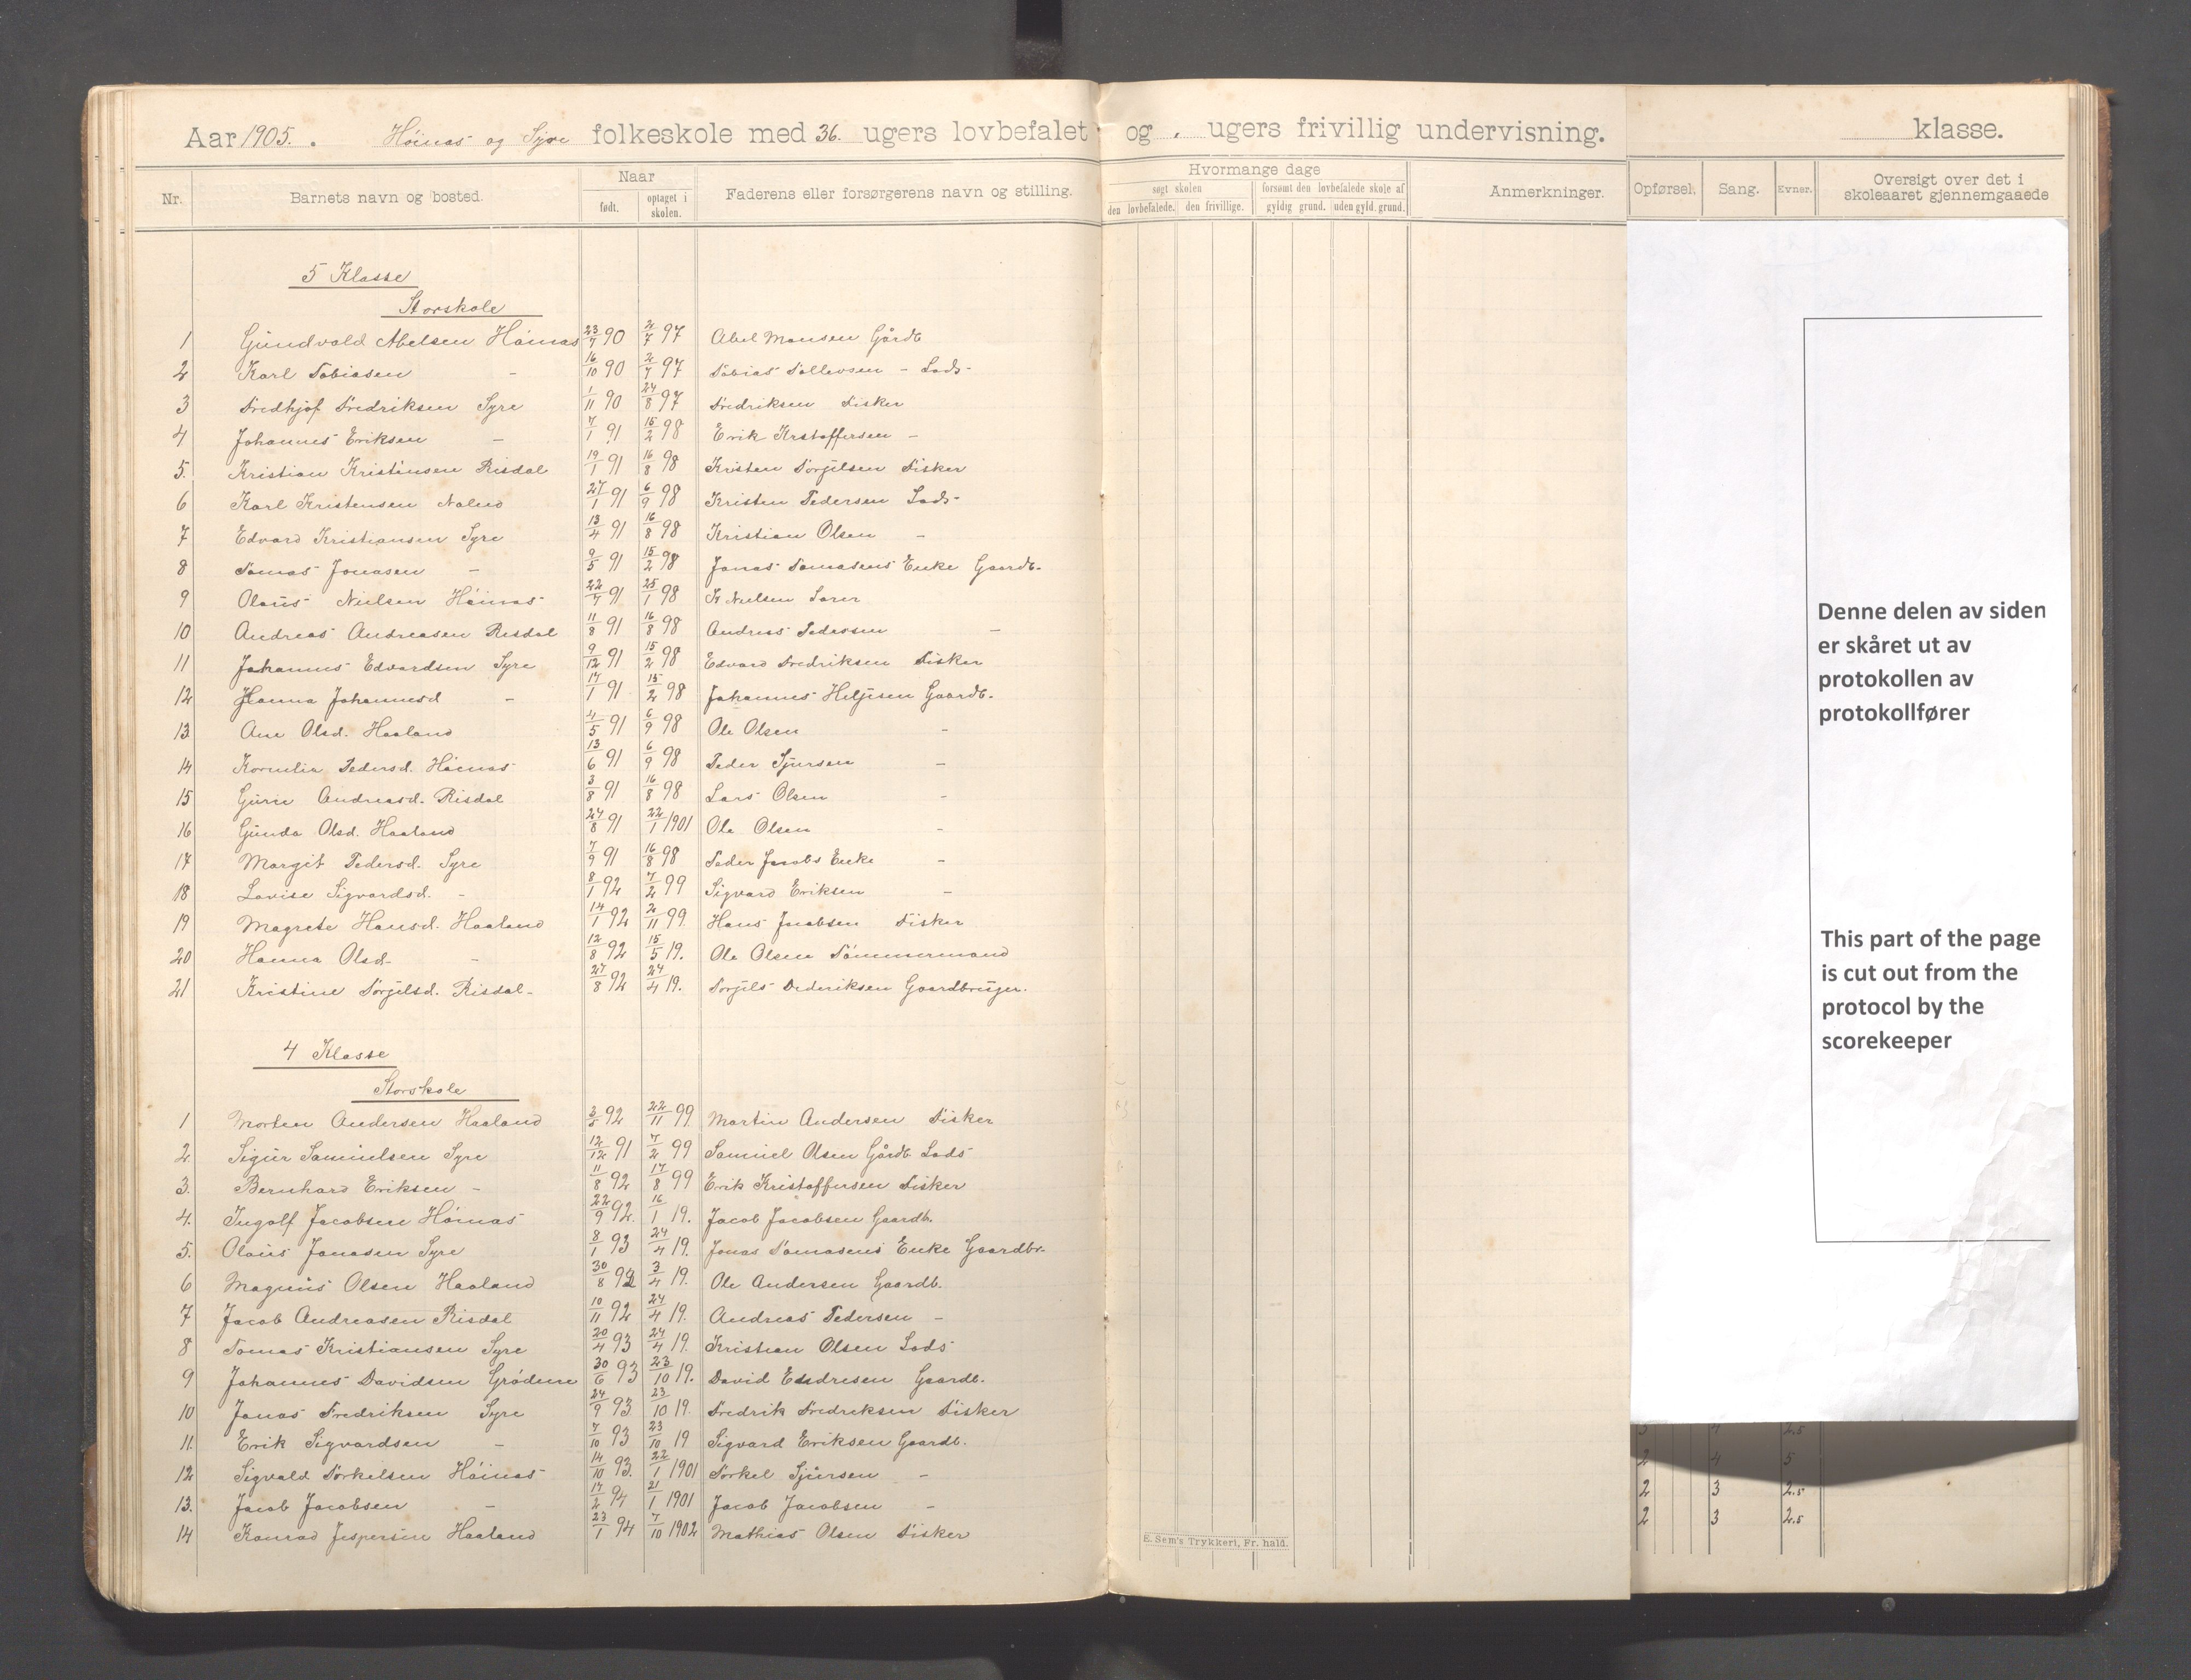 Aar 1905. Höinas og Syre folkeskole med 36. ugers lovbefalet og ugers frivillig undervisning. klasse.
Nr. Barnets navn og bosted. Naar født. optaget i skolen. Faderens eller forsørgerens navn og stilling. Hvormange dage søgt skolen den lovbefalede. den frivillige. forsømt den lovbefalede skole af gyldig grund. uden gyld. grund. Anmerkninger. Opførsel. Sang. Evner. Oversigt over det i skoleaaret gjennemgaaede
5 Klasse
Storskole
1 Gundvald Abelsen Höinas 23/7 90 2/7 97 Abel Monsen Gårdb
2 Karl Tobiasen - 16/10 90 2/7 97 Tobias Tollevsen - Lods-
3 Fredhjof Fredriksen Syre 1/11 90 24/8 97 Fredriksen Fisker
4 Johannes Eriksen - 7/1 91 15/2 98 Erik Krstoffersen -
5. Kristian Kristensen Risdal 19/1 91 16/8 98 Kristen Torjilsen Fisker
6 Karl Kristensen 27/1 91 6/9 98 Kristen Pedersen Lods-
7 Edvard Kristiansen Syre 13/4 91 16/8 98 Kristian Olsen -
8 Tomas Jonasen - 9/5 91 15/2 98 Jonas Tomasens Enke Gaardb.
9 Olaus Nielsen Höinas 22/7 91 25/1 98 K Nielsen Lærer
10 Andreas Andreasen Risdal 11/8 91 16/8 98 Andreas Pedersen -
11 Johannes Edvardsen Syre 9/12 91 15/2 98 Edvard Fredriksen Fisker
12 Hanna Johannesd - 17/1 91 15/2 98 Johannes Heljesen Gaardb.
13 Ane Olsd. Haaland 4/5 91 6/9 98 Ole Olsen -
14 Kornelia Pedersd. Höinas 13/6 91 6/9 98 Peder Sjursen -
15 Gurie Andreasd. Risdal 3/8 91 16/8 98 Lars Olsen -
16 Gunda Olsd. Haaland 24/8 91 22/1 1901 Ole Olsen -
17 Margit Pedersd. Syre 7/9 91 16/8 98 Peder Jacobs Enke -
18 Lovise Sigvardsd. - 8/1 92 7/2 99 Sigvard Eriksen -
19 Magrete Hansd. Haaland 14/1 92 2/11 99 Hans Jacobsen Fisker
20 Hanna Olsd. - 12/8 92 15/5 19. Ole Olsen Tömmermand
21 Kristine Torjilsd. Risdal- 27/8 92 24/4 19. Torjils Dideriksen Gaardbruger.
4 Klasse
Storskole
1 Morten Andersen Haaland 3/5 92 22/11 99 Martin Andersen Fisker
2. Sigur Samuelsen Syre 12/12 91 7/2 99 Samuel Olsen Gårdb. Lods
3. Bernhard Eriksen - 11/8 92 17/8 99 Erik Kristoffersen Fisker
4. Ingolf Jacobsen Höinas 22/9 92. 16/1 19. Jacob Jacobsen Gaardb.
5. Olaus Jonasen Syre 8/1 93 24/4 19. Jonas Tomasens Enke Gaardbr.
6 Magnus Olsen Haaland 30/8 92 3/4 19. Ole Andersen Gaardb.
7 Jacob Andreasen Risdal 10/11 92 24/4 19. Andreas Pedersen -
8 Tomas Kristiansen Syre 20/4 93 24/4 19. Kristian Olsen Lods
9 Johannes Davidsen Grödeme 30/6 93 23/10 19. David Endresen Gaardb.
10 Jonas Fredriksen Syre 24/9 93 23/10 19. Fredrik Fredreksen Fisker
11. Erik Sigvardsen - 7/10 93 23/10 19 Sigvard Eriksen Gaardb.
12 Sigvald Torkelsen Höinas 14/10 93. 22/1 1901 Torkel Sjursen -
13. Jacob Jacobsen - 17/2 94 21/1 1901 Jacob Jacobsen -
14 Konrad Jespersen Haaland 23/1 94 7/10 1902 Mathias Olsen Fisker
E. Sem's Trykkeri, Fr. hald.
Denne delen av siden
er skåret ut av
protokollen av
protokollfører
This part of the page
is cut out from the
protocol by the
scorekeeper
2 4 5
2 3 2.5
2 3 2.5